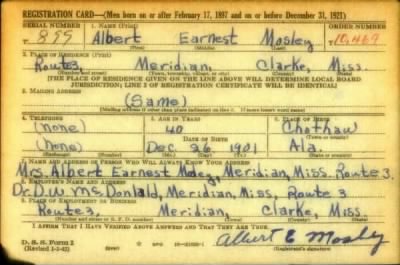 REGISTRATION CARD—(Men born on or after February 17, 1897 and on or before December 31, 1921)
SERIAL NUMBER 1. NAME (Print) ORDER NUMBER
T 855 Albert Earnest Mosley T 10,469
(First) (Middle) (Last)
2. PLACE OF RESIDENCE (Print)
Route 3, Meridian, Clarke, Miss.
(Number and street) (Town, township, village, or city) (County) (State)
[THE PLACE OF RESIDENCE GIVEN ON THE LINE ABOVE WILL DETERMINE LOCAL BOARD
JURISDICTION; LINE 2 OF REGISTRATION CERTIFICATE WILL BE IDENTICAL]
3. MAILING ADDRESS
(Same)
[Mailing address if other than place indicated on line 2. If same insert word same]
4. TELEPHONE 5. AGE IN YEARS 6. PLACE OF BIRTH
(none) 40 Chothaw
DATE OF BIRTH
(none) Dec 26 1901 Ala.
7. NAME AND ADDRESS OF PERSON WHO WILL ALWAYS KNOW YOUR ADDRESS
Mrs. Albert Earnest Mosley, Meridian, Miss. Route 3.
8. EMPLOYER'S NAME AND ADDRESS
Dr. D. W. McDonlald, Meridian, Miss, Route 3
9. PLACE OF EMPLOYMENT OR BUSINESS
Route 3, Meridian, Clarke, Miss.
(Number and street or R. F. D. number) (Town) (County) (State)
I AFFIRM THAT I HAVE VERIFIED ABOVE ANSWERS AND THAT THEY ARE TRUE.
D. S. S. Form 1
(Revised 1-1-42) (over) Albert E Mosley
(Registrant's signature)